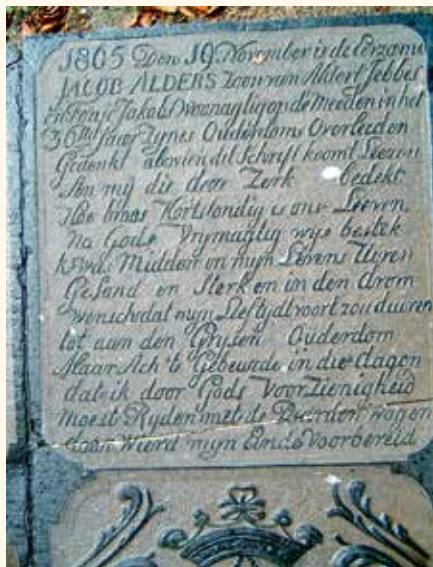 1805 Den 19. November is de Eerzame
JACOB ALDERS Zoon van Aldert Jebbes
en Jakobs woonagtig op de Meeden in het
30ste Jaar Zynes Ouderdoms Overleeden
Gedenkt a die dit Schrift koomt Leezen
Aan my die deze Zerk bedekt
Hoe broos Kortstondig is ons Leeven
Na Gods Vrymagtig wys bestek
k was Midden en mijn Levens Uuren
Gesond en Sterk en in den drom
wensch dat mijn Leeftydt voort zou duuren
tot aan den Grysen Ouderdom
Maar Ach 't Gebeurde in die dagen
dat ik door Gods Voorzienigheid
moest Ryden met de Paarden wagen
daar Wierd mijn Einde Voorbereid